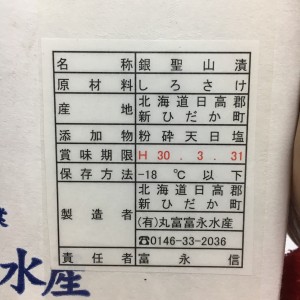 名称 銀聖山漬
原材料 しろさけ
産地 北海道日高郡
新ひだか町
添加物 粉砕天日塩
賞味期限 H 30 . 3 . 31
保存方法 -18 ℃ 以下
製造者 北海道日高郡
新ひだか町
(有)丸富富永水産
☎0146-33-2036
責任者 富永信
水産